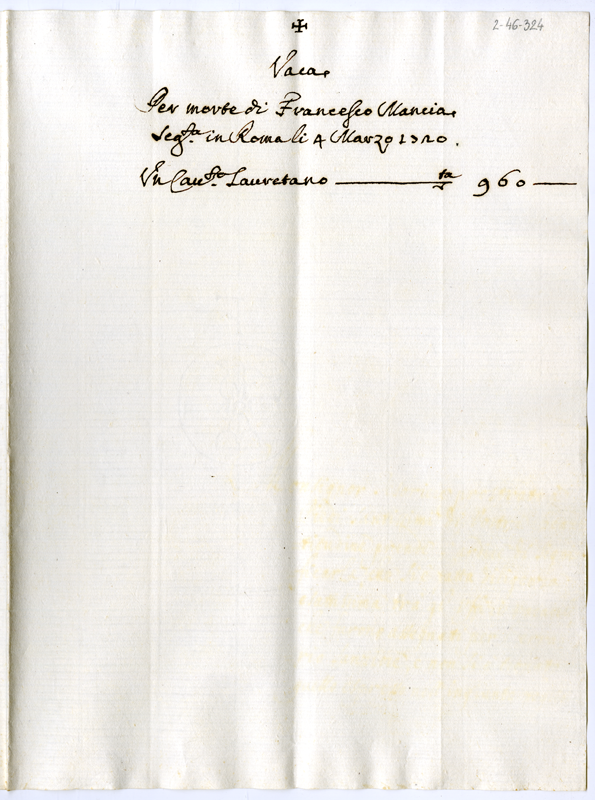 2-46-324
✠
Vaca
Per morte di Francesco Mancia
Seg.ta in Roma li 4 Marzo 1720.
Vn Cau.to Lauretano — 960 —